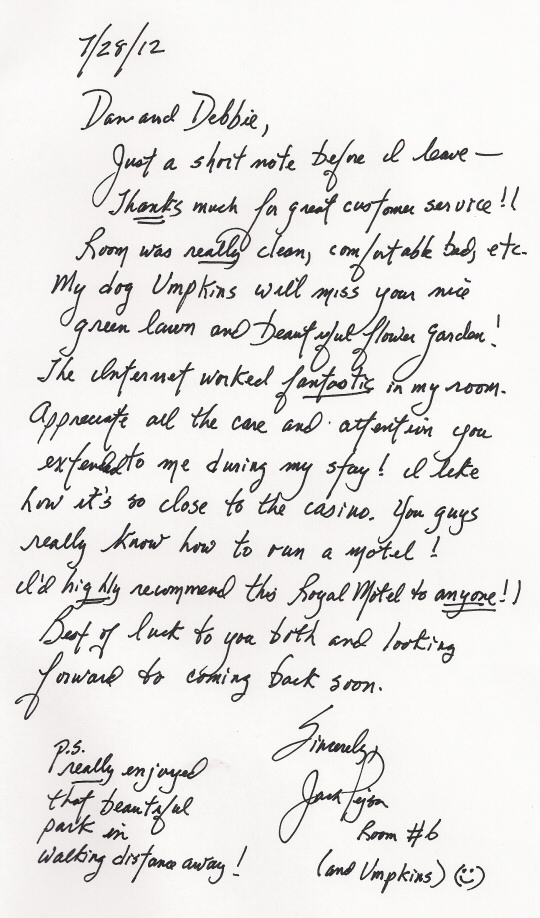 7/28/12
Dan and Debbie,
Just a short note before I leave —
Thanks much for great customer service!!
Room was really clean, comfortable bed, etc.
My dog Umpkins will miss your nice
green lawn and beautiful flower garden!
The Internet worked fantastic in my room.
Appreciate all the care and attention you
extended to me during my stay! I like
how it's so close to the casino. You guys
really know how to run a motel!
I'd highly recommend this Royal Motel to anyone!!
Best of luck to you both and looking
forward to coming back soon.
Sincerely,
Jack
Room #6
(and Umpkins) ☺
p.s.
really enjoyed
that beautiful
park in
walking distance away!